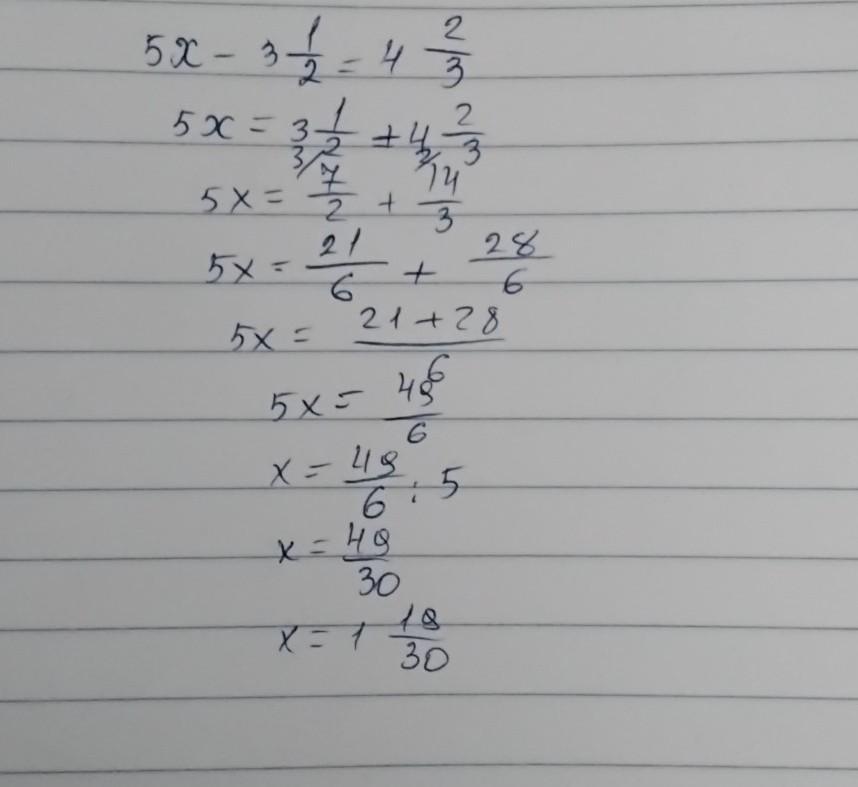 5x - 3 1/2 = 4 2/3
5x = 3 1/2 + 4 2/3
3/ 2/
5x = 7/2 + 14/3
5x = 21/6 + 28/6
5x = (21+28)/6
5x = 49/6
x = 49/6 : 5
x = 49/30
x = 1 19/30